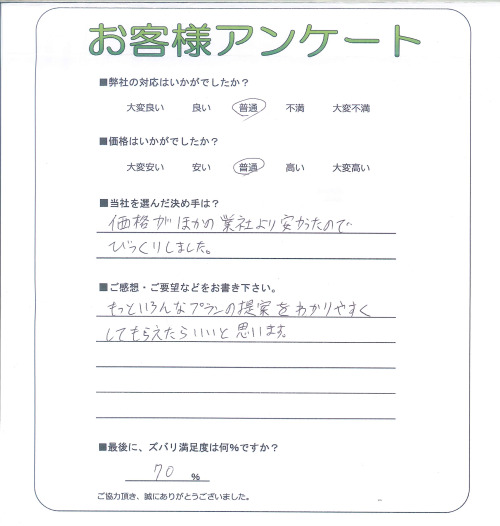 お客様アンケート
■弊社の対応はいかがでしたか?
大変良い 良い 普通 不満 大変不満
■価格はいかがでしたか?
大変安い 安い 普通 高い 大変高い
■当社を選んだ決め手は?
価格がほかの業社より安かったので
びっくりしました。
■ご感想・ご要望などをお書き下さい。
もっといろんなプランの提案をわかりやすく
してもらえたらいいと思います。
■最後に、ズバリ満足度は何%ですか?
70 %
ご協力頂き、誠にありがとうございました。